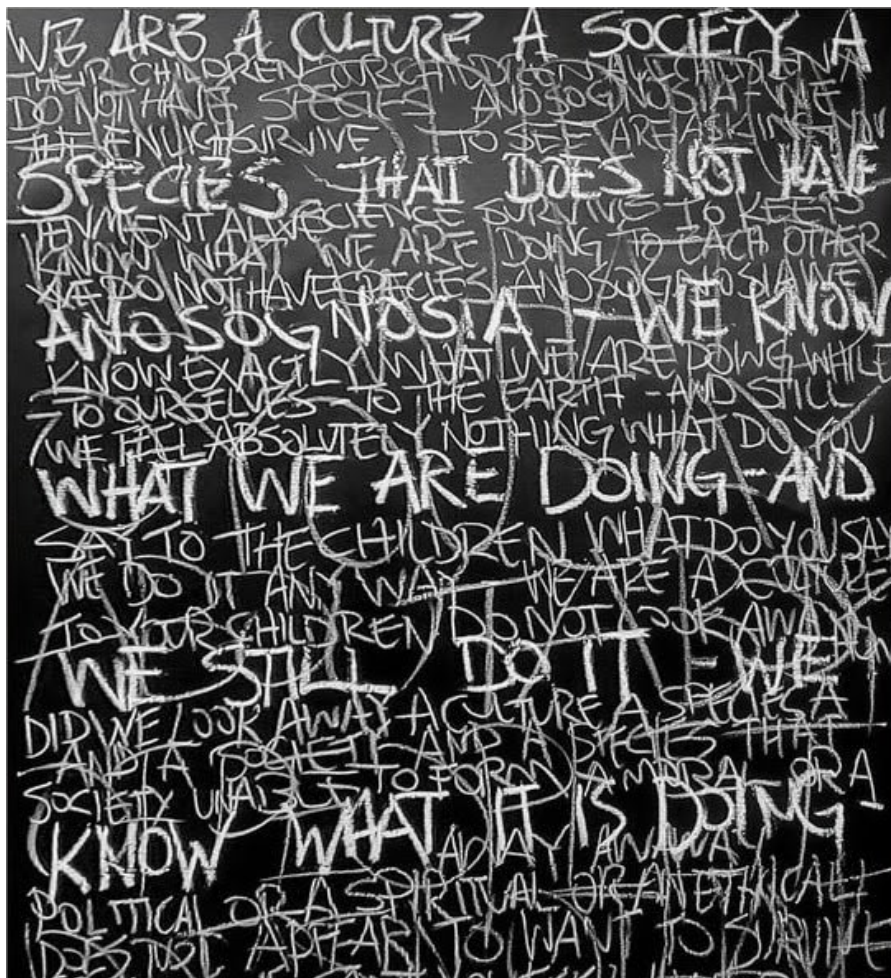 WE ARE A CULTURE A SOCIETY A
THEIR CHILDREN OUR CHILDREN ALL CHILDREN A
DO NOT HAVE SPECIES ANOSOGNOSIA
SURVIVE TO SEE ARE ASKING
SPECIES THAT DOES NOT HAVE
SURVIVE TO KEEP
KNOW WHAT WE ARE DOING TO EACH OTHER
WE DO NOT HAVE SPECIES ANOSOGNOSIA WE
ANOSOGNOSIA - WE KNOW
KNOW EXACTLY WHAT WE ARE DOING WHILE
TO OURSELVES TO THE EARTH - AND STILL
WE FEEL ABSOLUTELY NOTHING WHAT DO YOU
WHAT WE ARE DOING - AND
SAY TO THE CHILDREN WHAT DO YOU SAY
WE DO IT ANY WAY WE ARE A CULTURE
TO YOUR CHILDREN DO NOT LOOK AWAY
WE STILL DO IT - WE
DID WE LOOK AWAY A CULTURE A SPECIES A
AND A SOCIETY AND A SPECIES THAT
SOCIETY UNABLE TO FORM A MORAL OR A
KNOW WHAT IT IS DOING -
POLITICAL OR A SPIRITUAL OR AN ETHICAL
DOES NOT APPEAR TO WANT TO SURVIVE